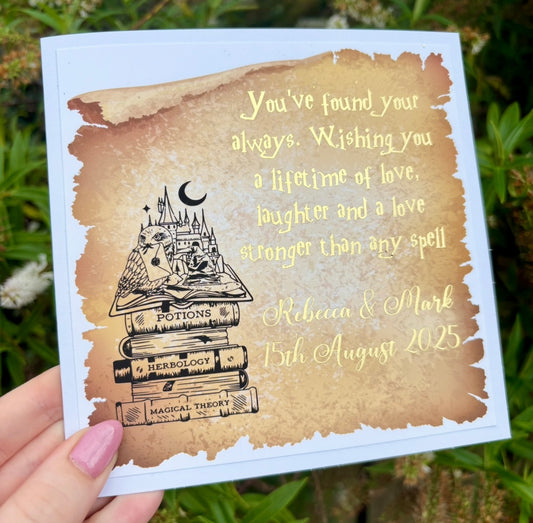 You've found your
always. Wishing you
a lifetime of love,
laughter and a love
stronger than any spell
Rebecca & Mark
15th August 2025
POTIONS
HERBOLOGY
MAGICAL THEORY